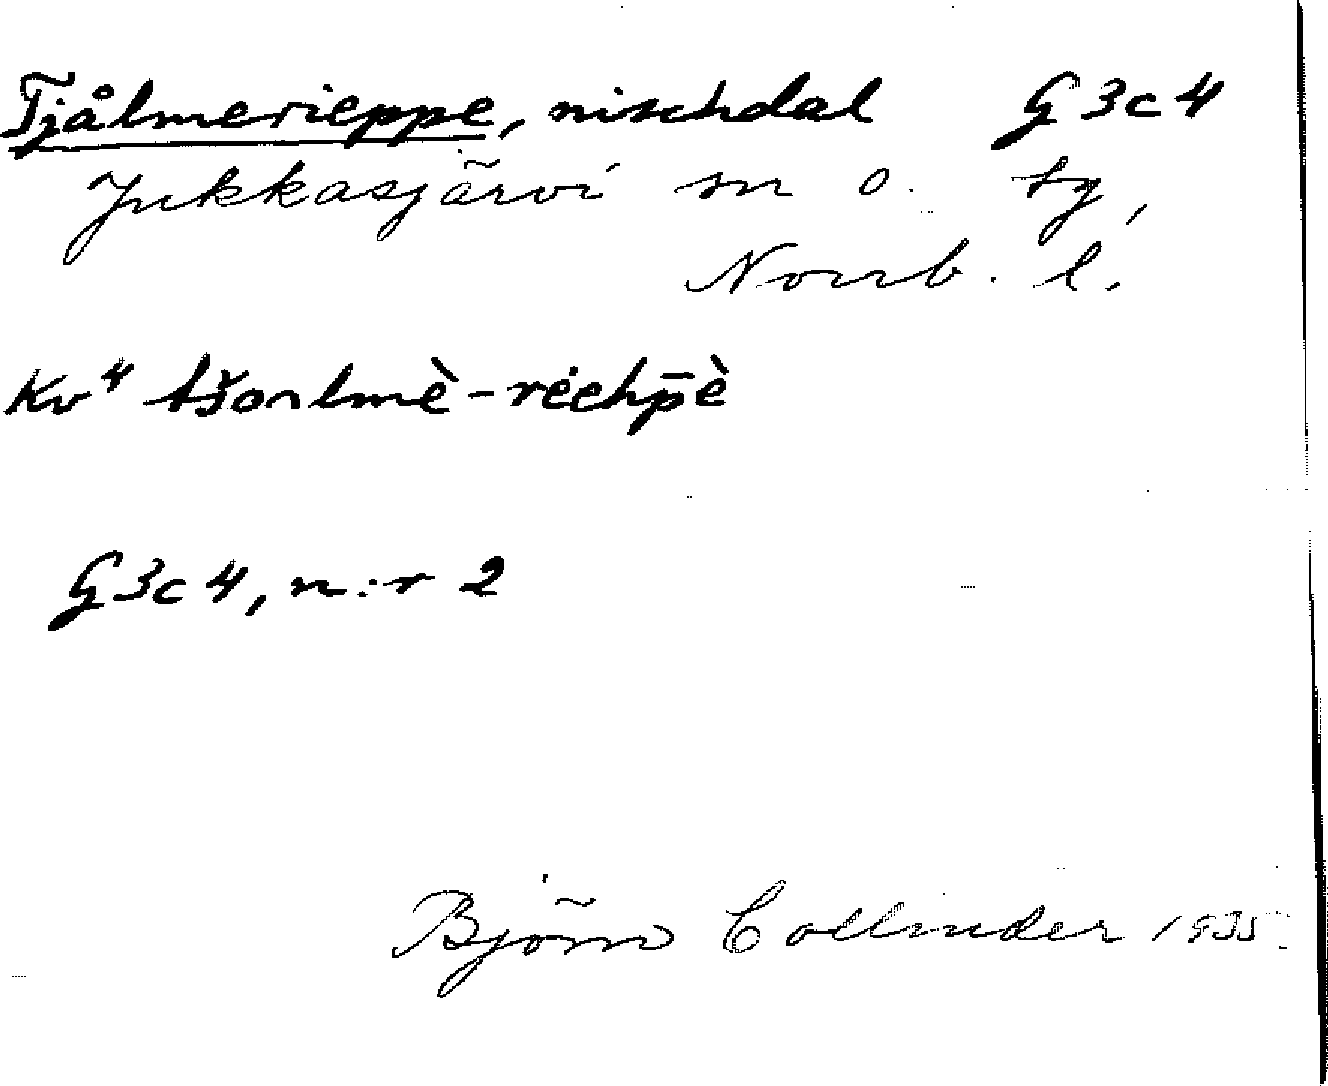 Tjålmerieppe, nischdal G3c4
Jukkasjärvi sn o. tg,
Norrb. l.
Kv⁴ tšoalmè-rėehp̄è
G3c4, n:r 2
Björn Collinder 1935.